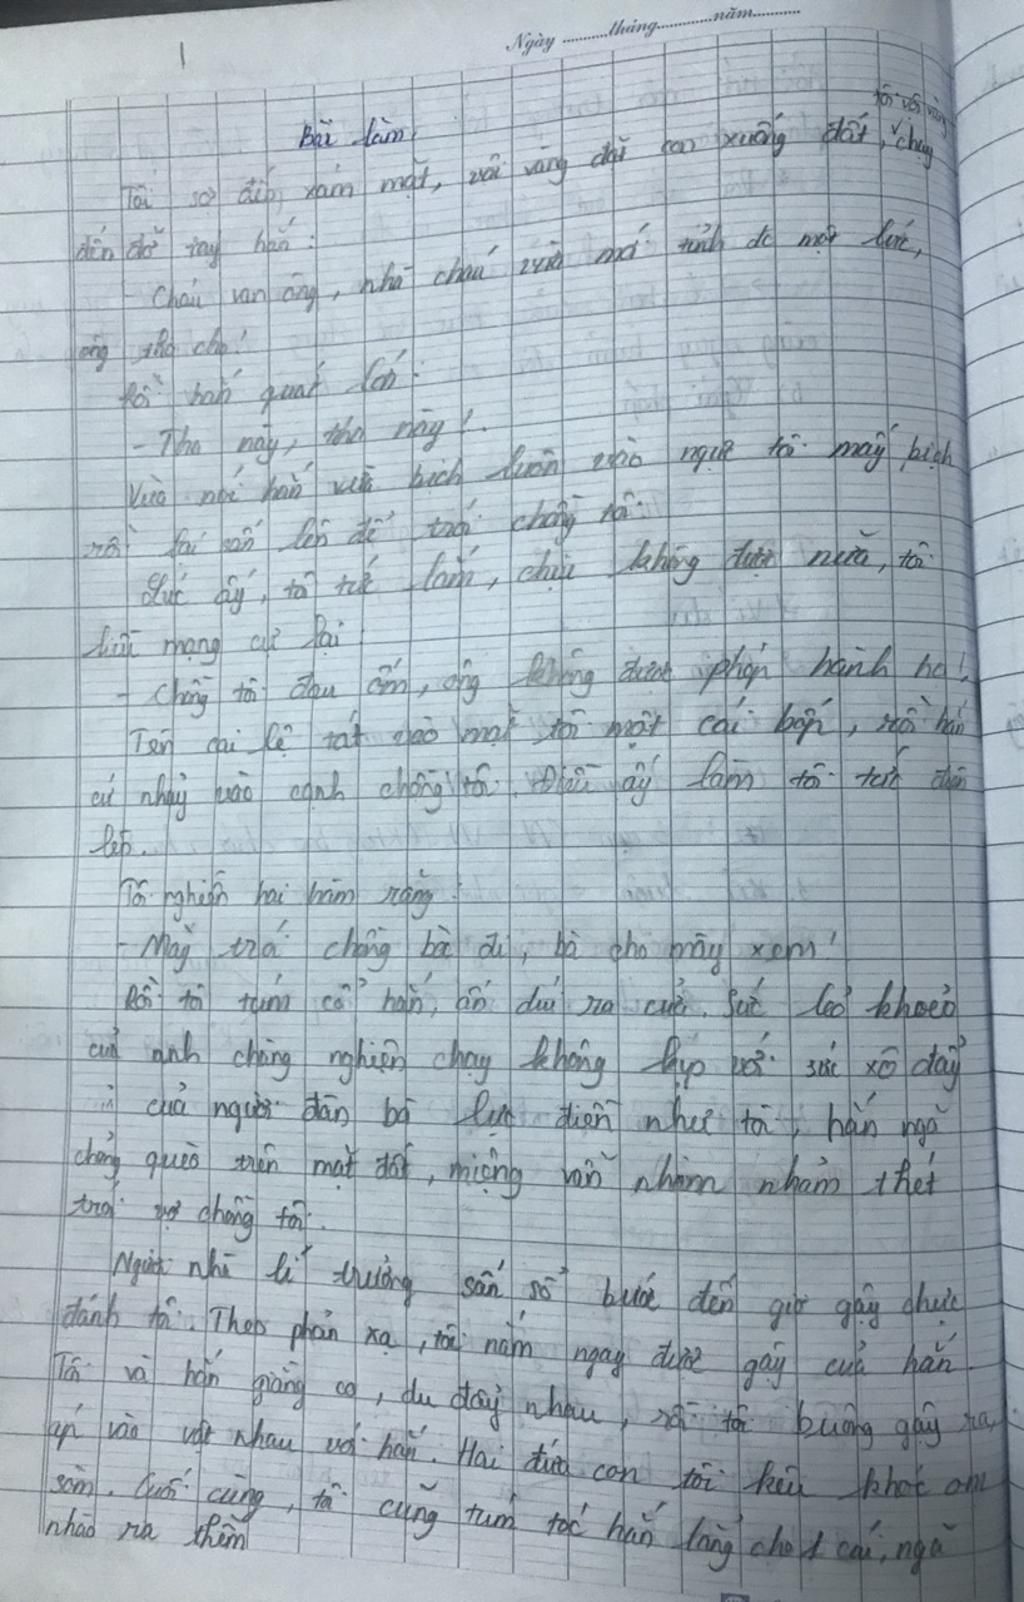 Ngày ..........tháng............năm...........
1
Bài làm
tôi vội vàng
Tôi sợ đến xám mặt, vội vàng đặt con xuống đất, chạy
đến đỡ tay hắn:
- Cháu van ông, nhà cháu vừa mới tỉnh đc một lúc,
ông tha cho!
Rồi hắn quát lớn:
- Tha này, tha này!
Vừa nói hắn vừa bịch luôn vào ngực tôi mấy bịch
rồi lại sấn lên để trói chồng tôi.
Lúc ấy, tôi tức lắm, chịu không được nữa, tôi
liều mạng cự lại
- Chồng tôi đau ốm, ông không được phép hành hạ!
Tên cai lệ tát vào mặt tôi một cái bốp, rồi hắn
cứ nhảy vào cạnh chồng tôi. Điều ấy làm tôi tức điên
lên.
Tôi nghiến hai hàm răng:
- Mày trói chồng bà đi, bà cho mày xem!
Rồi tôi túm cổ hắn, ấn dúi ra cửa. Sức lẻo khoẻo
của anh chàng nghiện chạy không kịp với sức xô đẩy
của người đàn bà lực điền như tôi, hắn ngã
chỏng quèo trên mặt đất, miệng vẫn nhàm nhảm thét
trói vợ chồng tôi.
Người nhà lí trưởng sấn sổ bước đến giơ gậy chực
đánh tôi. Theo phản xạ, tôi nắm ngay được gậy của hắn.
Tôi và hắn giằng co, du đẩy nhau, rồi tôi buông gậy ra,
áp vào vật nhau với hắn. Hai đứa con tôi kêu khóc om
sòm. Cuối cùng, tôi cũng túm tóc hắn lẳng cho 1 cái, ngã
nhào ra thềm